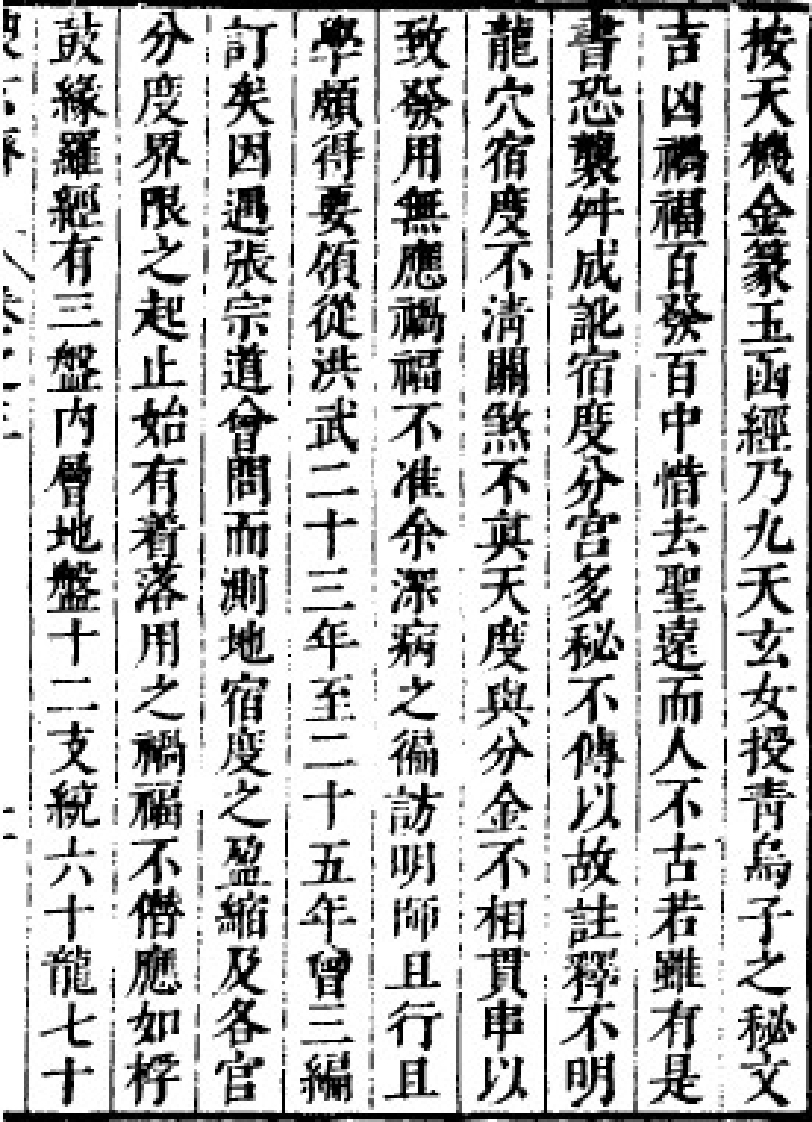 按天機金篆玉函經乃九天玄女授青烏子之秘文
吉凶禍福百發百中惜去聖遠而人不古若雖有是
書恐襲舛成訛宿度分宮多秘不傳以故註釋不明
龍穴宿度不清關煞不真天度與分金不相貫串以
致發用無應禍福不准余深病之徧訪明師且行且
學頗得要領從洪武二十三年至二十五年曾三編
訂矣因遇張宗道曾問而測地宿度之盈縮及各宮
分度界限之起止始有着落用之禍福不僭應如桴
鼓緣羅經有三盤內層地盤十二支統六十龍七十